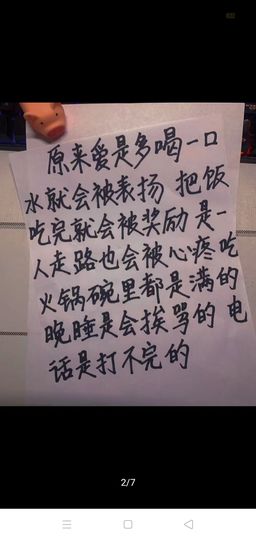 原来爱是多喝一口
水就会被表扬 把饭
吃完就会被奖励 是一
人走路也会被心疼 吃
火锅碗里都是满的
晚睡是会挨骂的 电
话是打不完的
2/7